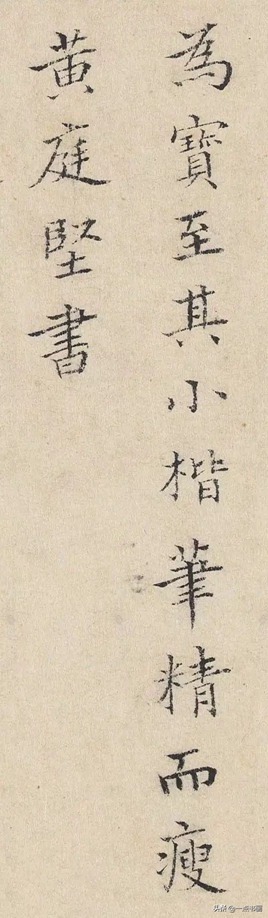 為寶至其小楷筆精而瘦
黃庭堅書
头条@一点书画